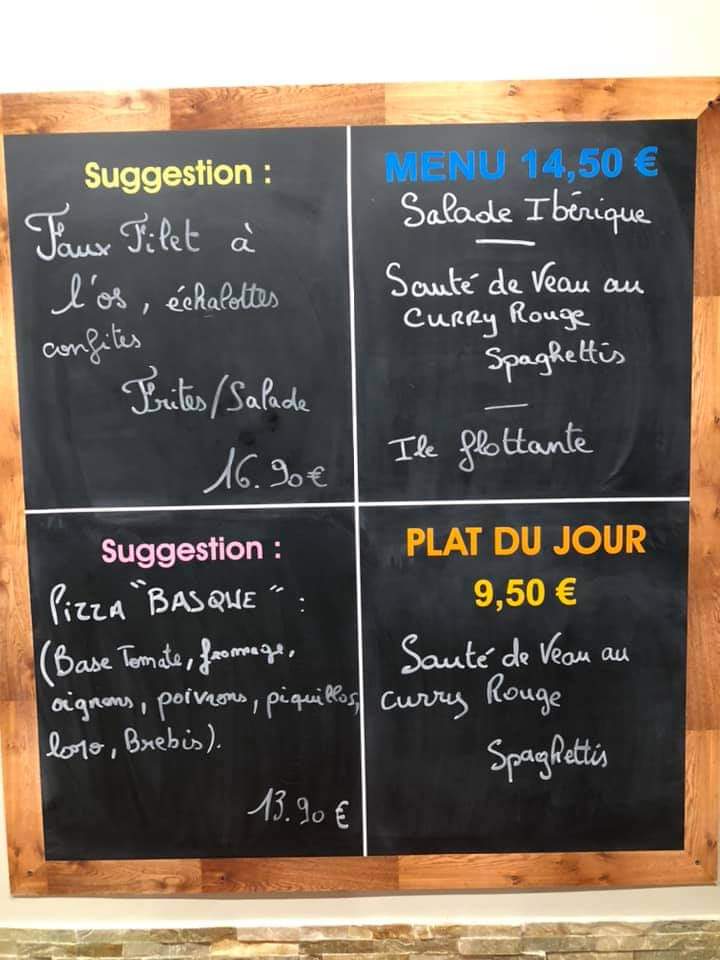 Suggestion :
Faux Filet à
l'os, échalottes
confites
Frites/Salade
16.90€
MENU 14,50 €
Salade Ibérique
Sauté de Veau au
CURRY Rouge
Spaghettis
Ile flottante
Suggestion :
PIZZA "BASQUE" :
(Base Tomate, fromage,
oignons, poivrons, piquillos,
lomo, Brebis).
13.90 €
PLAT DU JOUR
9,50 €
Sauté de Veau au
curry Rouge
Spaghettis